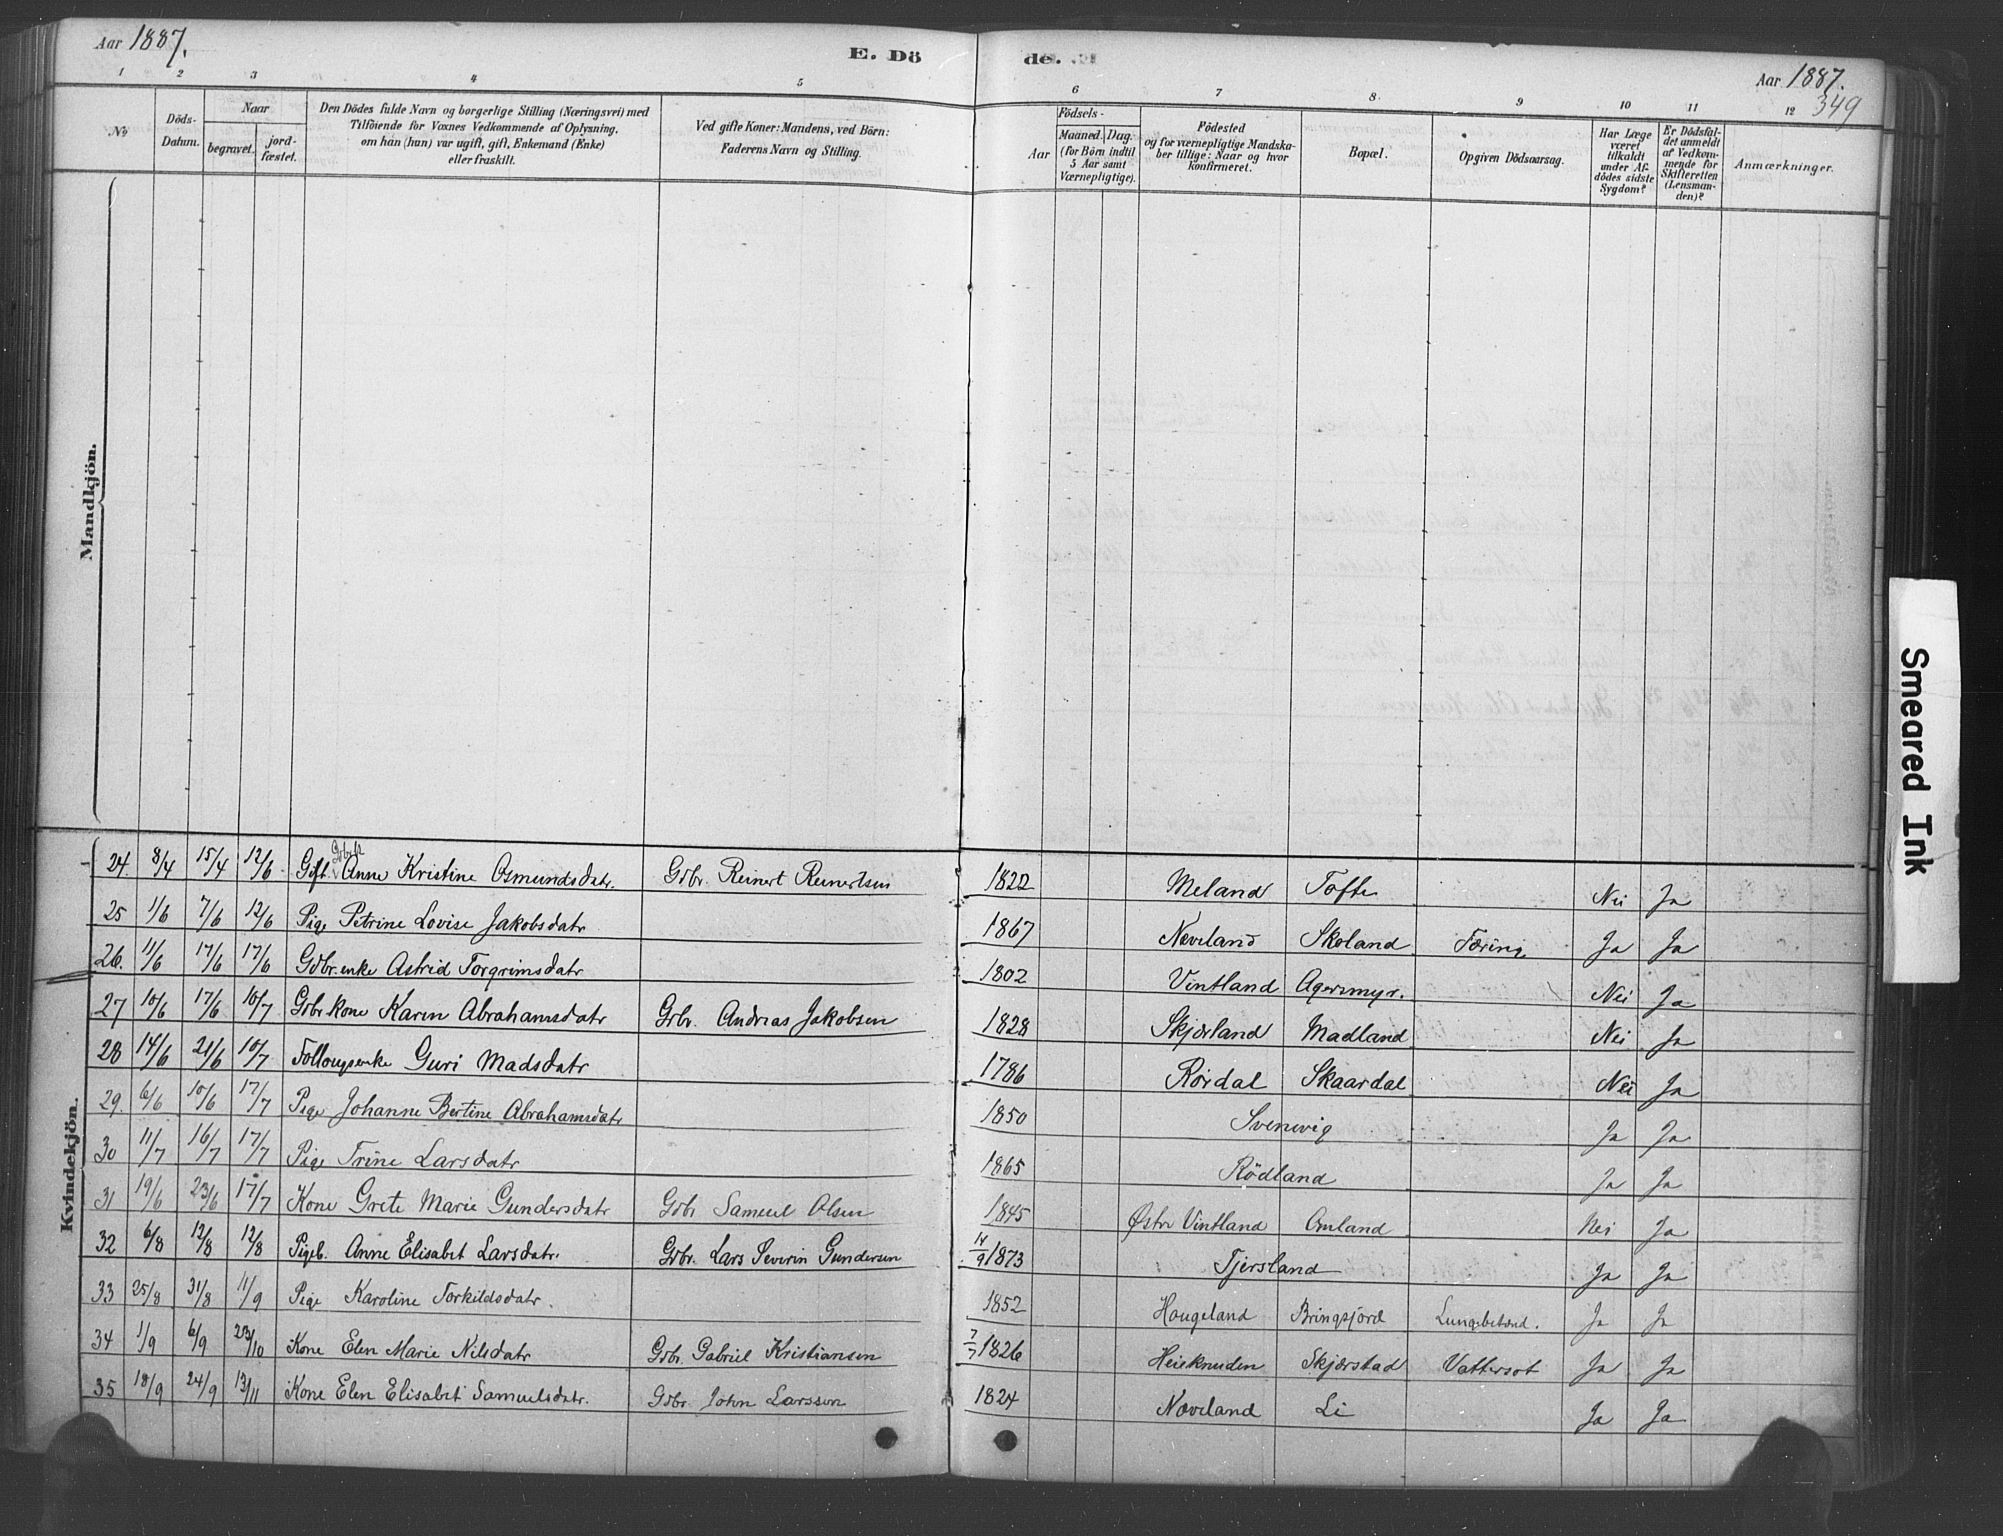 Aar 1887. E. Dö de. Aar 1887.
349
1 2 3 4 5 6 7 8 9 10 11 12
No
Döds-Datum.
Naar
begravet.
jord-fæstet.
Den Dödes fulde Navn og borgerlige Stilling (Næringsvei) med
Tilföiende for Voxnes Vedkommende af Oplysning,
om han (hun) var ugift, gift, Enkemand (Enke)
eller fraskilt.
Ved gifte Koner: Mandens, ved Börn:
Faderens Navn og Stilling.
Födsels-
Aar
Maaned. Dag.
(for Börn indtil
5 Aar samt
Værnepligtige).
Födested
og for værnepligtige Mandska-
ber tillige: Naar og hvor
konfirmeret.
Bopæl.
Opgiven Dödsaarsag.
Har Læge
været
tilkaldt
under Af-
dödes sidste
Sygdom?
Er Dödsfal-
det anmeldt
af Vedkom-
mende for
Skifteretten
(Lensman-
den)?
Anmærkninger.
Mandkjön.
Kvindekjön.
24. 8/4 15/4 12/6 Gift Anne Kristine Osmundsdatr. Gdbr. Reinert Reinertsen 1822 Meland Tofte Nei Ja
25 1/6 7/6 12/6 Pige Petrine Lovise Jakobsdatr 1867 Næveland Skoland Tæring Ja Ja
26. 11/6 17/6 17/6 Gdbr.enke Astrid Torgrimsdatr 1802 Vintland Agersmyr. Nei Ja
27 10/6 17/6 10/7 Gdbr kone Karen Abrahamsdatr Gdbr. Andreas Jakobsen 1828 Skjærland Madland Nei Ja
28 14/6 21/6 10/7 Follougsenke Guri Madsdatr 1786 Rørdal Skaardal Nei Ja
29. 6/6 10/6 17/7 Pige Johanne Bertine Abrahamsdatr 1850 Svenevig Ja Ja
30 11/7 16/7 17/7 Pige Trine Larsdatr 1865 Rödland Ja Ja
31 19/6 23/6 17/7 Kone Grete Marie Gundersdatr Gdbr Samuel Olsen 1845 Østre Vintland Omland Nei Ja
32 6/8 12/8 12/8 Pigeb. Anne Elisabet Larsdatr. Gdbr. Lars Severin Gundersen 14/9 1873 Tjersland Ja Ja
33 25/8 31/8 11/9 Pige Karoline Torkildsdatr. 1852 Hougeland Bringsjord Lungebetænd. Ja Ja
34 1/9 6/9 23/10 Kone Elen Marie Nilsdatr Gdbr. Gabriel Kristiansen 7/7 1826 Heieknuden Skjærstad Vattersot Ja Ja
35 18/9 24/9 13/11 Kone Elen Elisabet Samuelsdatr. Gdbr. John Larssen 1824 Næveland Li Ja Ja
Smeared Ink